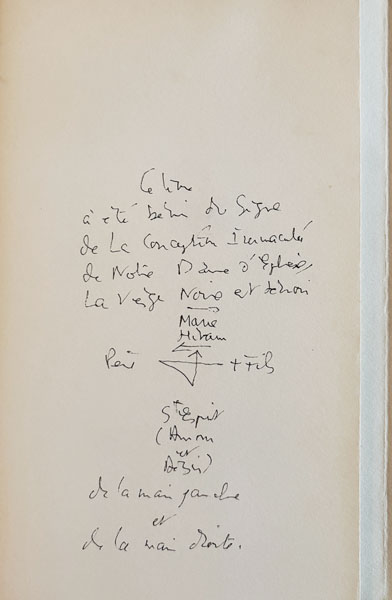 Ce livre
a été béni du Signe
de La Conception Immaculée
de Notre Dame d'
La Vierge Noire est témoin
Marie
Hiram
Père + Fils
St Esprit
(Amour
et
Désir)
de la main gauche
et
de la main droite.